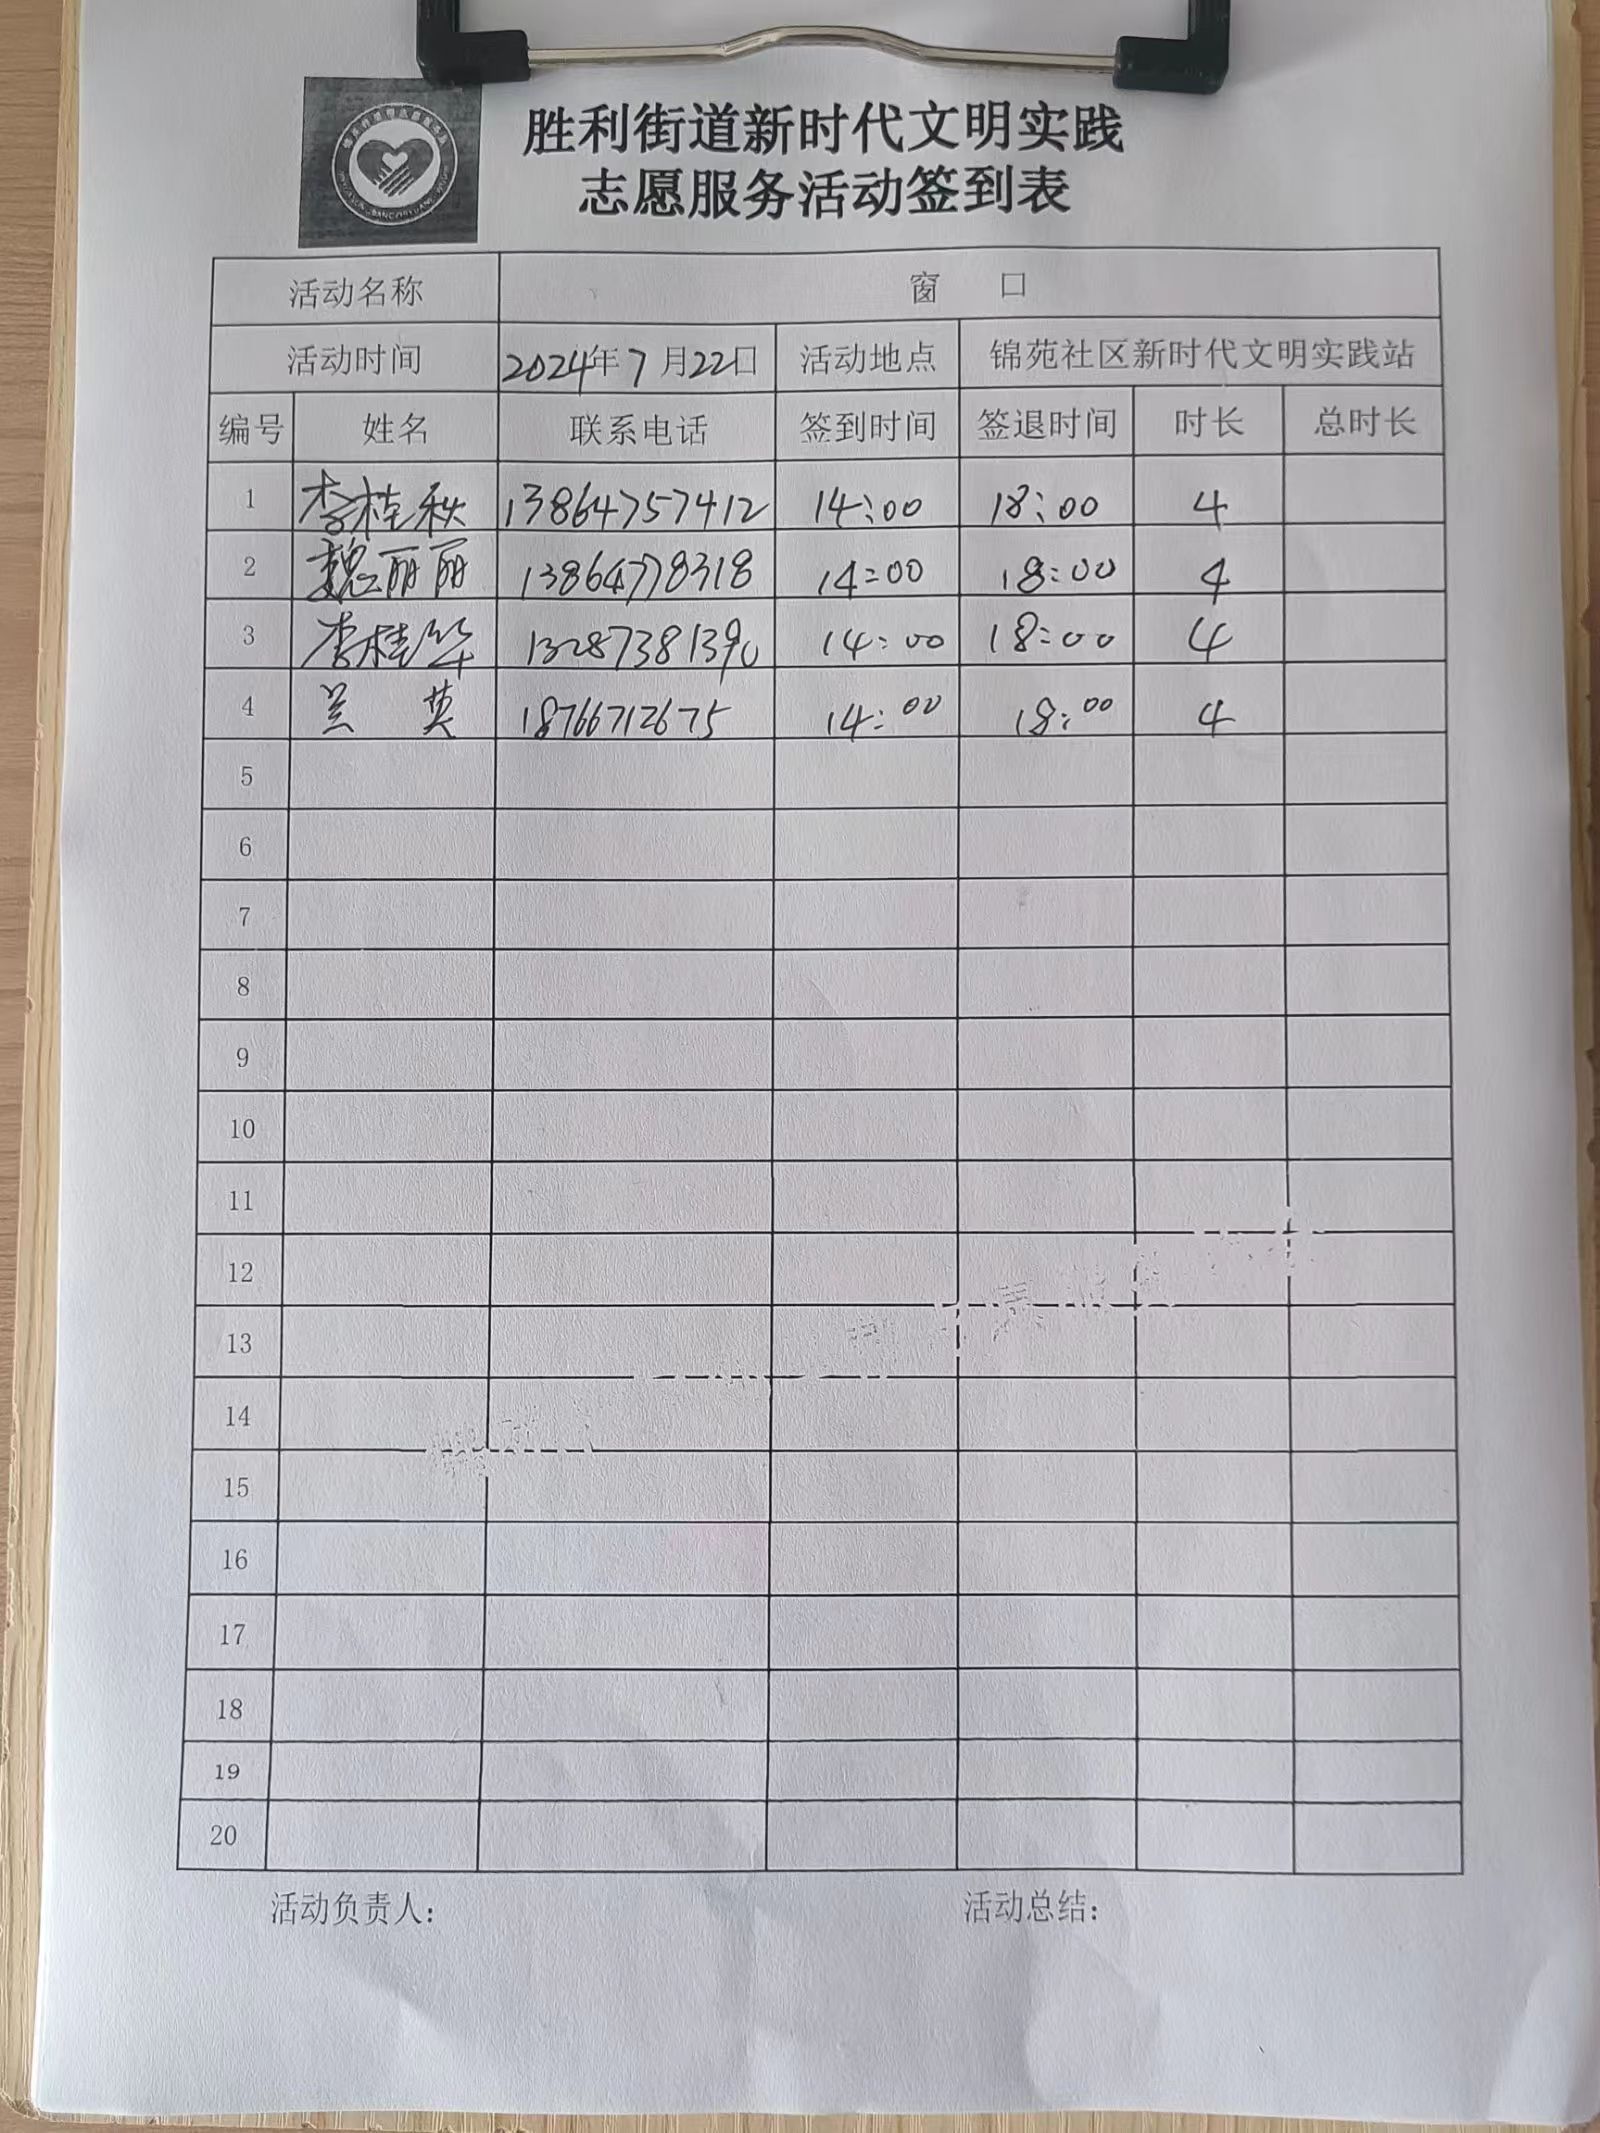 胜利街道新时代文明实践
志愿服务活动签到表
活动名称 窗 口
活动时间 2024年7月22日 活动地点 锦苑社区新时代文明实践站
编号 姓名 联系电话 签到时间 签退时间 时长 总时长
1 李桂秋 13864757412 14:00 18:00 4
2 魏丽丽 13864778318 14:00 18:00 4
3 李桂华 13287381390 14:00 18:00 4
4 兰英 18766712675 14:00 18:00 4
5
6
7
8
9
10
11
12
13
14
15
16
17
18
19
20
活动负责人: 活动总结: